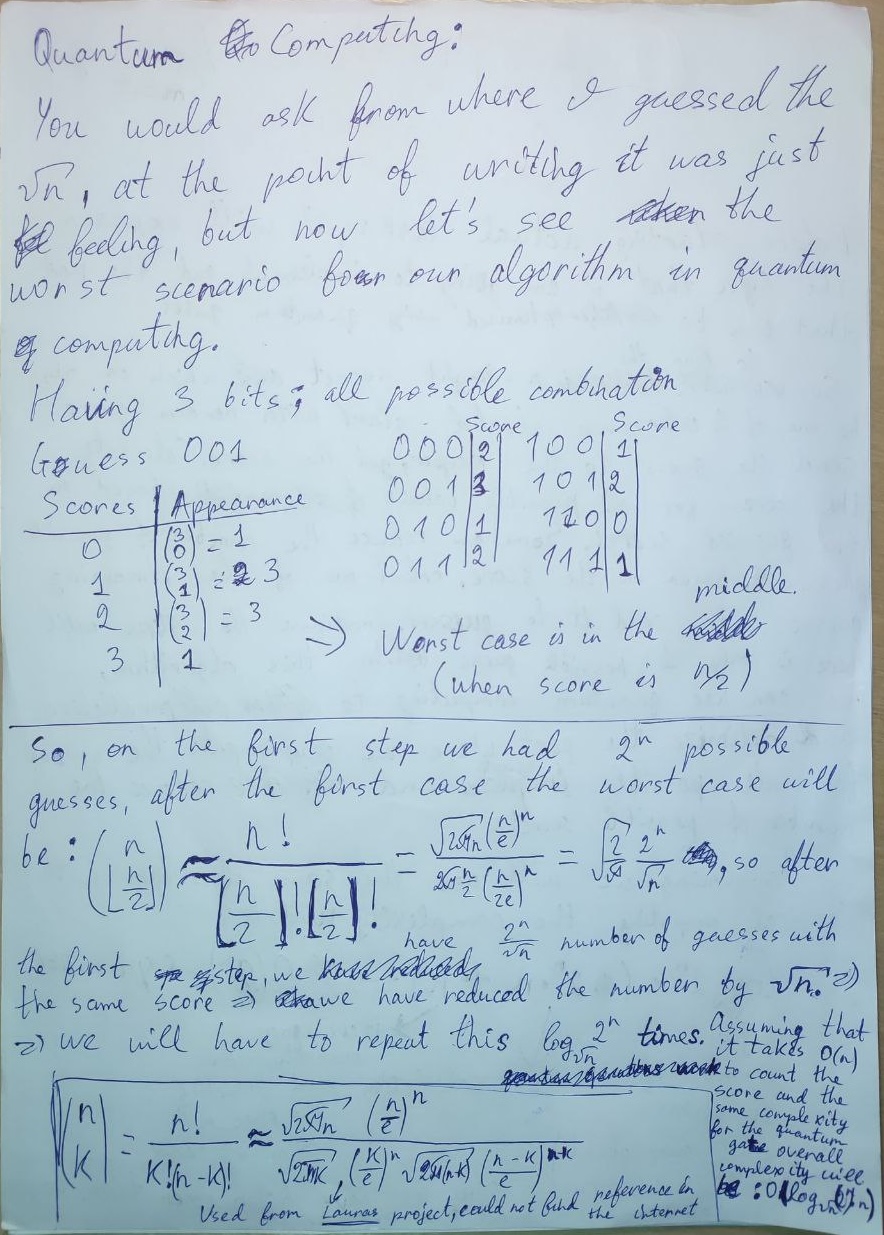 Quantum Computing:
You would ask from where I guessed the
√n, at the point of writing it was just
feeling, but now let's see the
worst scenario for our algorithm in quantum
computing.
Having 3 bits; all possible combination
Guess 001
Scores | Appearance
0 | (3 0) = 1
1 | (3 1) = 3
2 | (3 2) = 3
3 | 1
Score Score
000|2| 100|1|
001|3| 101|2|
010|1| 110|0|
011|2| 111|1|
=> Worst case is in the middle.
(when score is n/2)
So, on the first step we had 2^n possible
guesses, after the first case the worst case will
be: (n ⌊n/2⌋) ≈ n! / ⌊n/2⌋!⌊n/2⌋! = √2πn (n/e)^n / 2π n/2 (n/2e)^n = √2/π 2^n/√n, so after
the first step, we have 2^n/√n number of guesses with
the same score => we have reduced the number by √n. =>
=> we will have to repeat this log_√n 2^n times. Assuming that
it takes O(n)
to count the
score and the
same complexity
for the quantum
gate overall
complexity will
be: O(log_√n(2^n) n)
(n K) = n! / K!(n-K)! ≈ √2πn (n/e)^n / √2πK (K/e)^n √2π(n-K) (n-K/e)^n-K
Used from Lauras project, could not find reference in
the internet